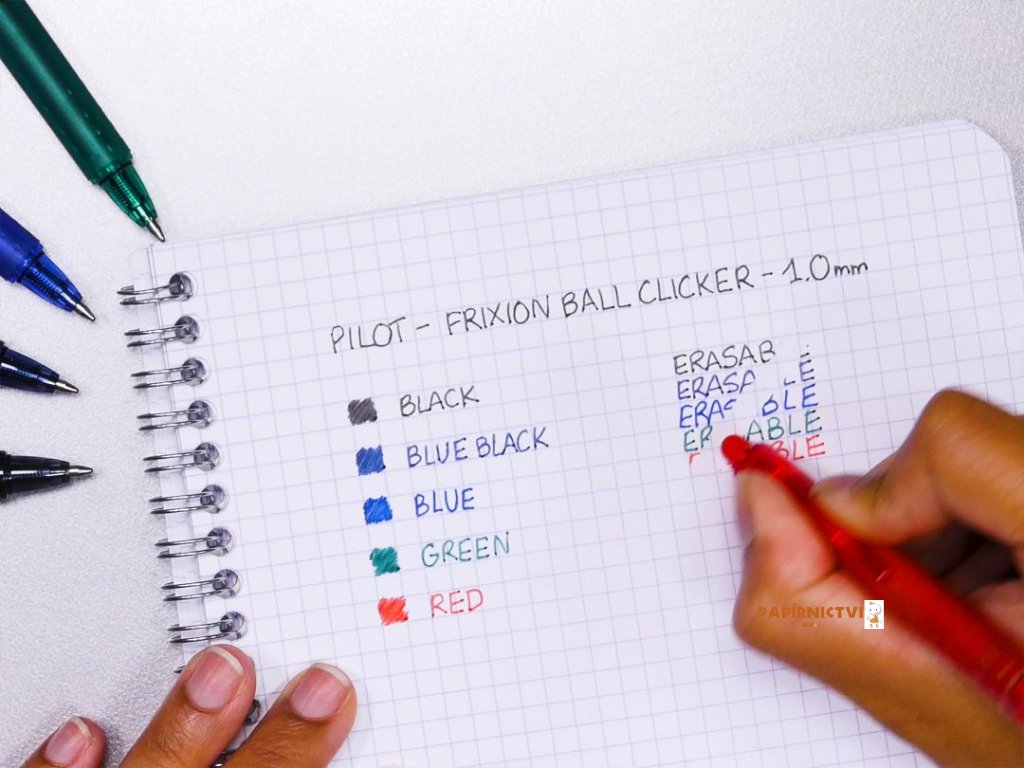 PILOT - FRIXION BALL CLICKER - 1.0mm
BLACK
BLUE BLACK
BLUE
GREEN
RED
ERASAB
ERASA LE
ERA BLE
ER ABLE
BLE
PAPÍRNICTVÍ